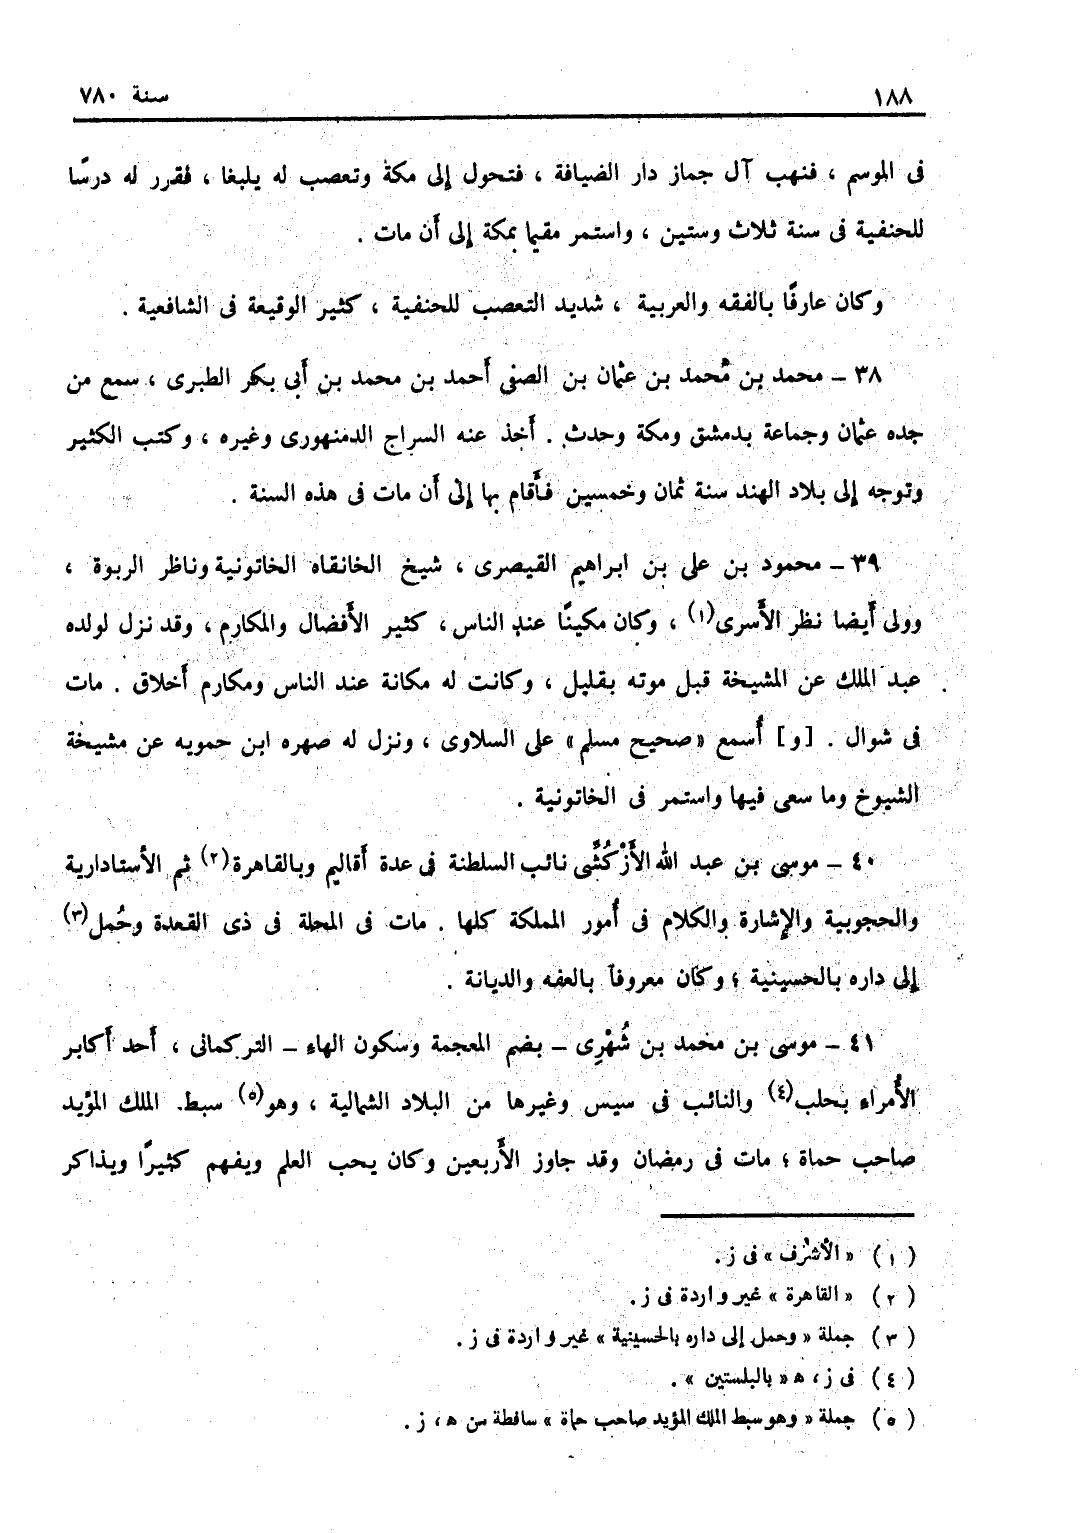 ١٨٨ سنة ٧٨٠
فى الموسم ، فنهب آل جماز دار الضيافة ، فتحول إلى مكة وتعصب له يلبغا ، فقرر له درسًا
للحنفية فى سنة ثلاث وستين ، واستمر مقيما بمكة إلى أن مات .
وكان عارفًا بالفقه والعربية ، شديد التعصب للحنفية ، كثير الوقيعة فى الشافعية .
٣٨ – محمد بن مُحمد بن عثمان بن الصفى أحمد بن محمد بن أبى بكر الطبرى ، سمع من
جده عثمان وجماعة بدمشق ومكة وحدث . أخذ عنه السراج الدمنهورى وغيره ، وكتب الكثير
وتوجه إلى بلاد الهند سنة ثمان وخمسين فأقام بها إلى أن مات فى هذه السنة .
٣٩ – محمود بن على بن ابراهيم القيصرى ، شيخ الخانقاه الخاتونية وناظر الربوة ،
وولى أيضا نظر الأسرى(١) ، وكان مكينًا عند الناس ، كثير الأفضال والمكارم ، وقد نزل لولده
عبد الملك عن المشيخة قبل موته بقليل ، وكانت له مكانة عند الناس ومكارم أخلاق . مات
فى شوال . [و] أُسمع «صحيح مسلم» على السلاوى ، ونزل له صهره ابن حمويه عن مشيخة
الشيوخ وما سعى فيها واستمر فى الخاتونية .
٤٠ – موسى بن عبد الله الأَزْكُشَّى نائب السلطنة فى عدة أقاليم وبالقاهرة(٢) ثم الأستادارية
والحجوبية والإشارة والكلام فى أُمور المملكة كلها . مات فى المحلة فى ذى القعدة وحُمل(٣)
إلى داره بالحسينية ؛ وكان معروفاً بالعفه والديانة .
٤١ – موسى بن محمد بن شُهْرِى – بضم المعجمة وسكون الهاء – التركمانى ، أحد أكابر
الأُمراء بحلب(٤) والنائب فى سيس وغيرها من البلاد الشمالية ، وهو(٥) سبط. الملك المؤيد
صاحب حماة ؛ مات فى رمضان وقد جاوز الأربعين وكان يحب العلم ويفهم كثيرًا ويذاكر
(١) « الأشرف » فى ز .
(٢) « القاهرة » غير واردة فى ز .
(٣) جملة « وحمل إلى داره بالحسينية » غير واردة فى ز .
(٤) فى ز ، ﻫ « بالبلستين » .
(٥) جملة « وهو سبط الملك المؤيد صاحب حماة » ساقطة من ﻫ ، ز .